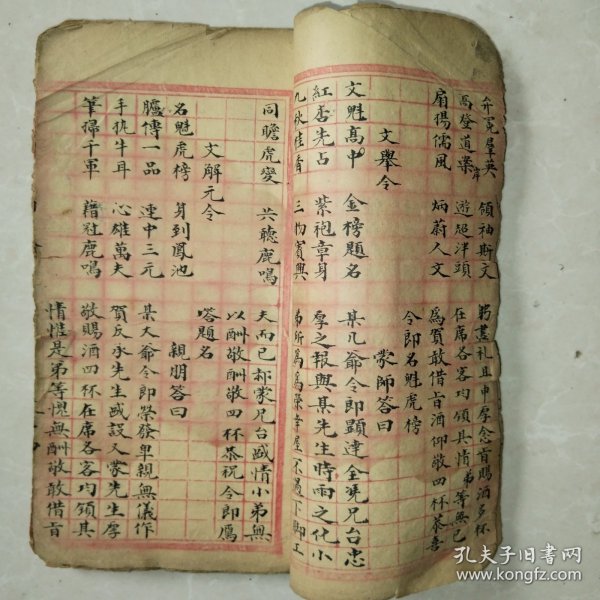 弁冕群英 領袖斯文
高登道岸 遊過泮頭
扇揚儒風 炳蔚人文
文舉令
文魁高中 金榜題名
紅杏先占 紫袍章身
九秋桂香 三物賓興
盡礼且申厚念旨賜酒多杯
在席各客均領其情弟等無已
為賀敢借旨酒仰敬四杯恭喜
令郎名魁虎榜
蒙師答曰
某几爺令郎顕達全凴兄台忠
厚之报與某先生時雨之化小
弟所為爲榮幸屋不過下脚工
同瞻虎變 共聽鹿鳴
文解元令
名魁虎榜 身到鳳池
臚傳一品 連中三元
手执牛耳 心雄萬夫
筆掃千軍 籍冠鹿鳴
夫而已却蒙兄台盛情小弟無
以酬敬酬敬四杯恭祝令郎鴈
塔題名
親朋答曰
某大爺令郎榮發卑親無儀作
賀反承先生盛設又蒙先生厚
敬賜酒四杯在席各客均領其
情惟是弟等愧無酬敬敢借旨
孔夫子旧书网
www.kongfz.com